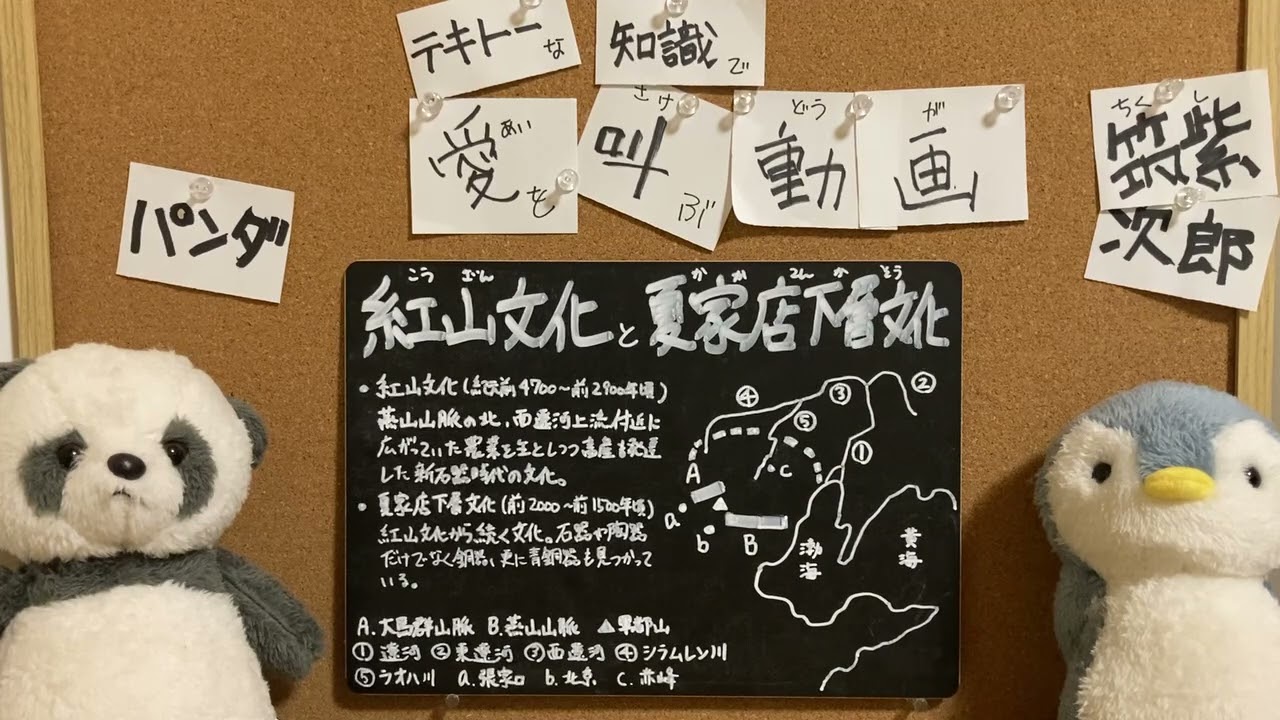 テキトーな
知識で
愛を
あい
叫ぶ
さけ
動画
どう が
パンダ
筑紫
ちく し
次郎
こう ざん か か てん か そう
紅山文化と夏家店下層文化
• 紅山文化(紀元前4700〜前2900年頃)
燕山山脈の北、西遼河上流付近に
広がっていた農業を主としつつ畜産も発達
した新石器時代の文化。
• 夏家店下層文化(前2000〜前1500年頃)
紅山文化から続く文化。石器や陶器
だけでなく銅器、更に青銅器も見つかって
いる。
④ ③ ②
⑤ ①
A c
a
b B
渤海
黄海
A.大馬群山脈 B.燕山山脈 ▲軍都山
①遼河 ②東遼河 ③西遼河 ④シラムレン川
⑤ラオハ川 a.張家口 b.北京 c.赤峰